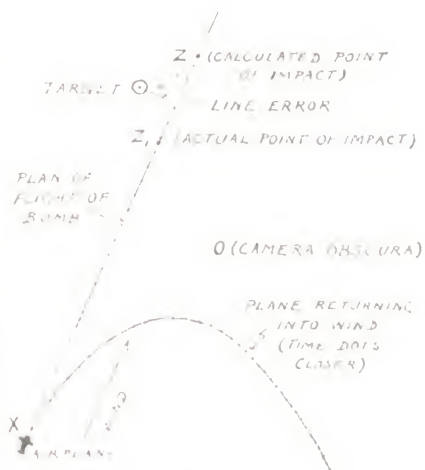 Z • (CALCULATED POINT
OF IMPACT)
TARGET
LINE ERROR
Z₁ (ACTUAL POINT OF IMPACT)
PLAN OF
FLIGHT OF
BOMB
O (CAMERA OBSCURA)
PLANE RETURNING
INTO WIND
(TIME DOTS
CLOSER)
X
AIRPLANE